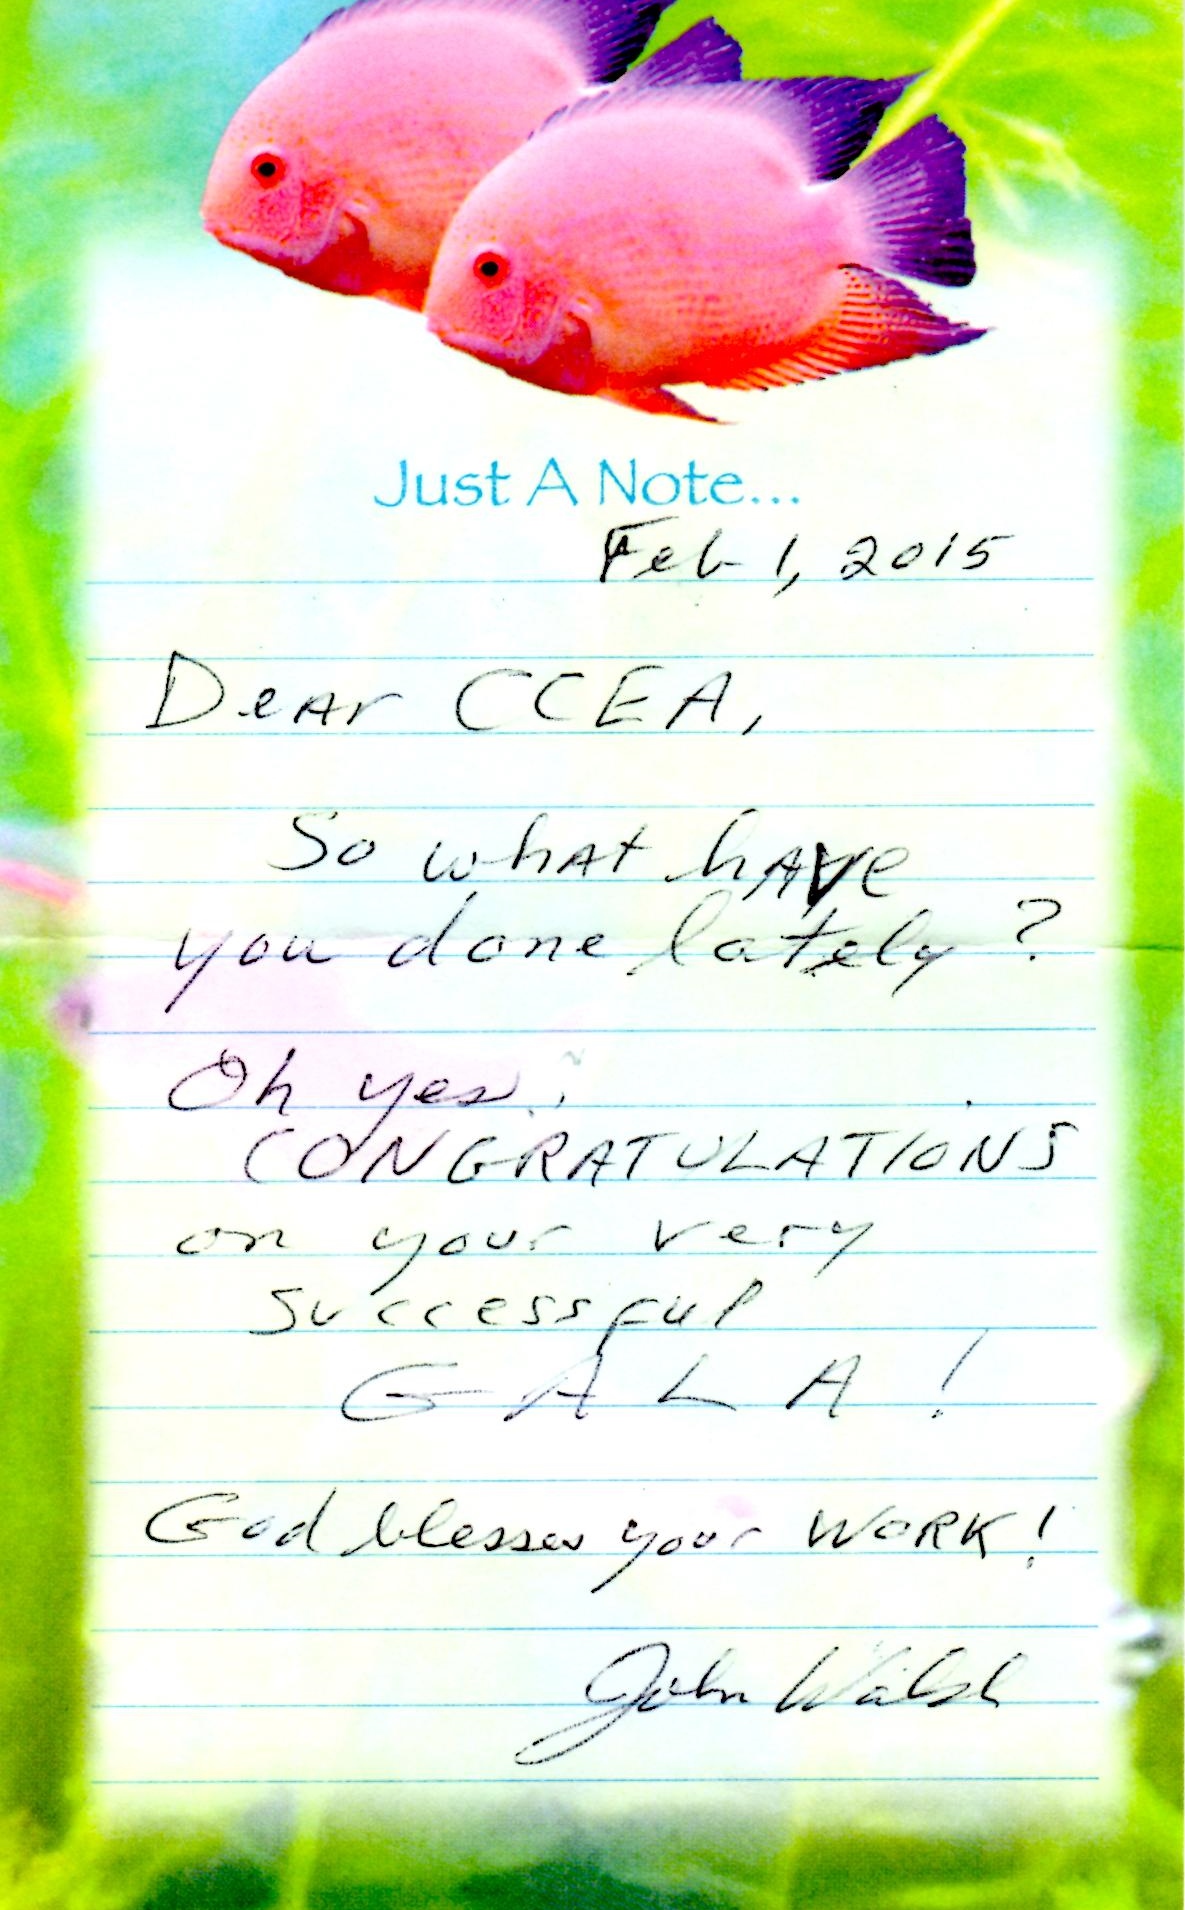 Just A Note...
Feb 1, 2015
Dear CCEA,
So what have
you done lately?
Oh yes:
CONGRATULATIONS
on your very
successful
GALA!
God blesses your WORK!
John Walsh